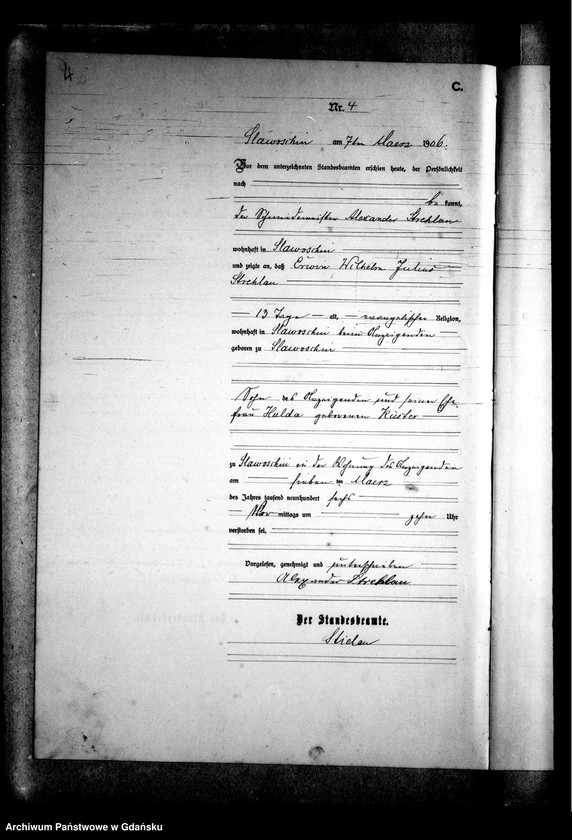 4
C.
Nr. 4
Slawoschin am 7ten Maerz 1906.
Vor dem unterzeichneten Standesbeamten erschien heute, der Persönlichkeit
nach
be kannt,
der Schmiedemeister Alexander Strehlau
wohnhaft in Slawoschin
und zeigte an, daß Erwin Wilhelm Julius
Strehlau
13 Tage alt, evangelischer Religion,
wohnhaft in Slawoschin beim Anzeigenden
geboren zu Slawoschin
Sohn des Anzeigenden und seiner Ehe
frau Hulda geborenen Küster
zu Slawoschin in der Wohnung des Anzeigenden
am sieben ten Maerz
des Jahres tausend neunhundert sechs
Vor mittags um zehn Uhr
verstorben sei.
Vorgelesen, genehmigt und unterschrieben
Alexander Strehlau
Der Standesbeamte.
Archiwum Państwowe w Gdańsku